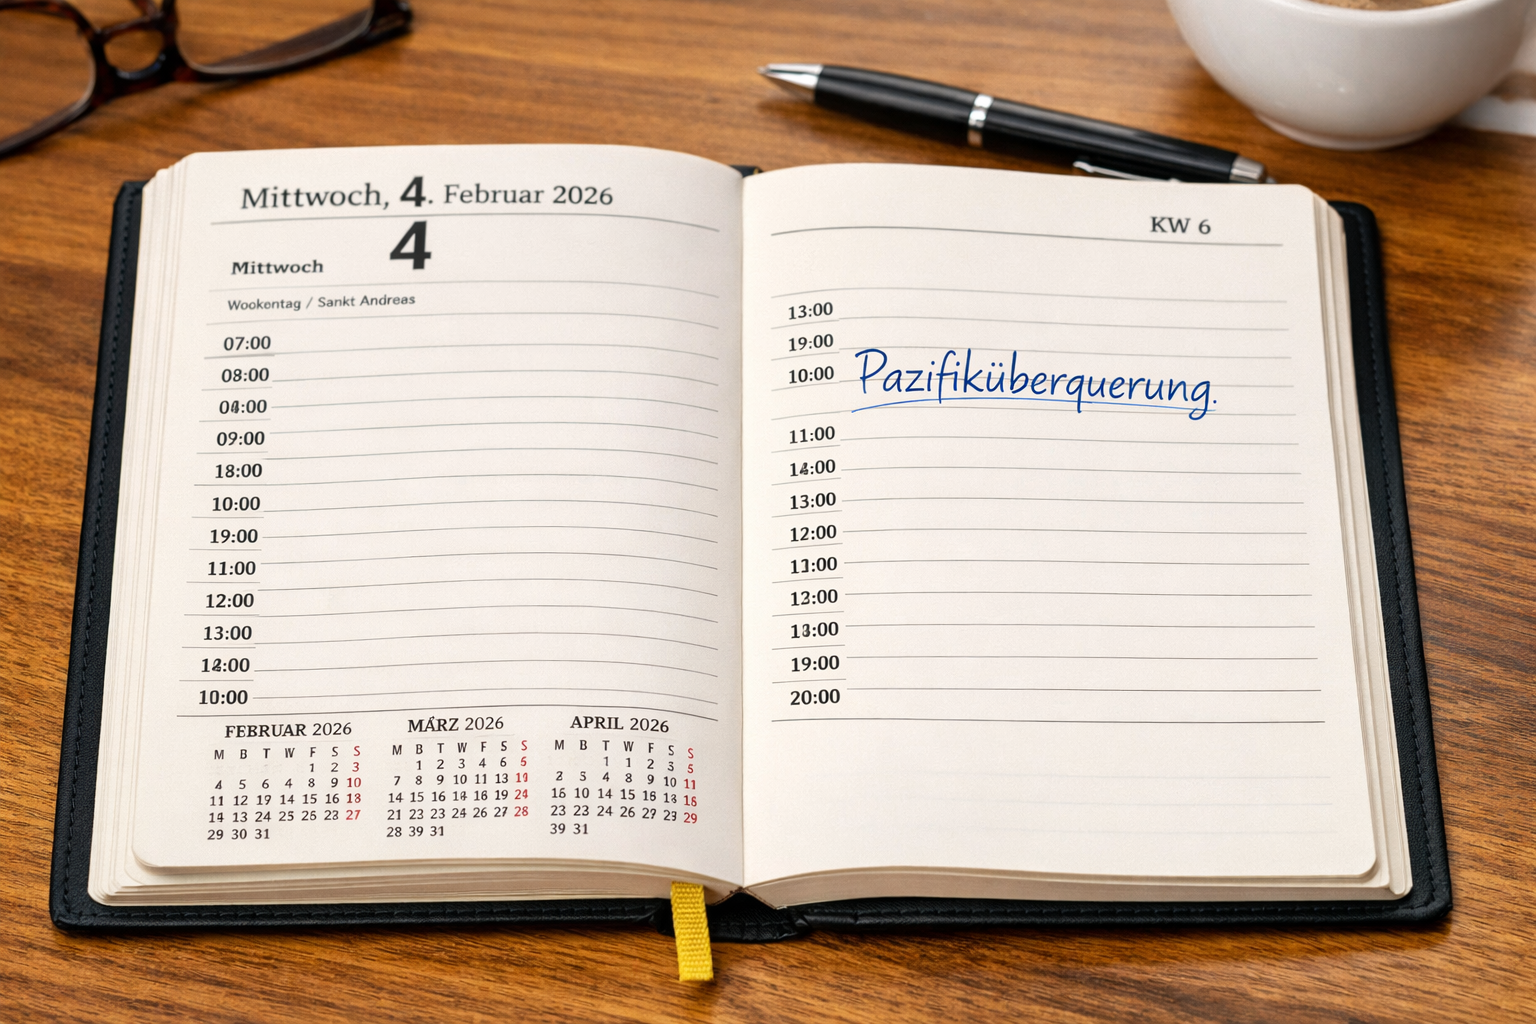 Mittwoch, 4. Februar 2026
4
Mittwoch
Wookentag / Sankt Andreas
07:00
08:00
04:00
09:00
18:00
10:00
19:00
11:00
12:00
13:00
12:00
10:00
FEBRUAR 2026
M B T W F S S
1 2 3
4 5 6 4 8 9 10
11 12 19 14 15 16 18
14 13 24 25 26 23 27
29 30 31
MÄRZ 2026
M B T W F S S
1 2 3 4 6 6
7 8 9 10 11 13 19
14 15 16 18 18 19 24
21 23 23 24 26 27 28
28 39 31
APRIL 2026
M B T W F S S
1 1 2 3 5
2 5 4 8 9 10 11
16 10 14 15 16 18 16
23 23 24 26 27 29 29
39 31
KW 6
13:00
19:00
10:00 Pazifiküberquerung.
11:00
14:00
13:00
12:00
13:00
12:00
18:00
19:00
20:00